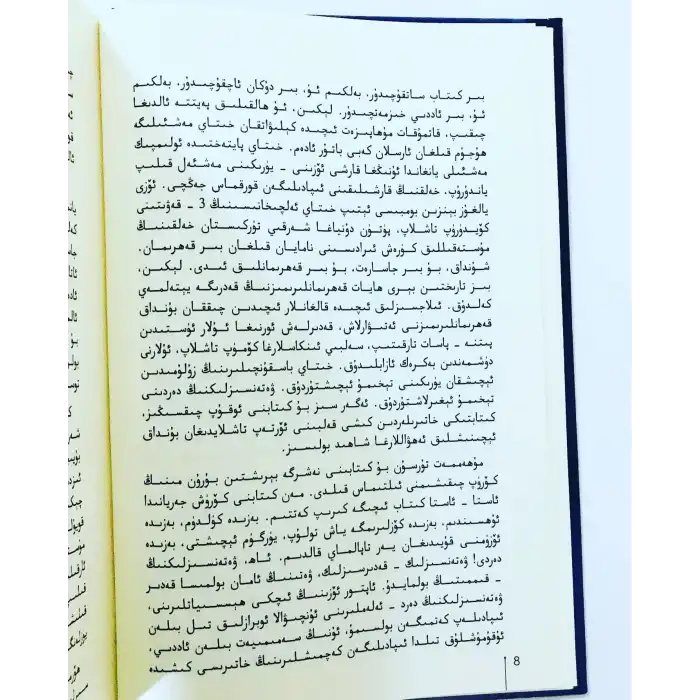 بىر كىتاب ساتقۇچىدۇر، بەلكىم ئۇ، بىر دۇكان ئاچقۇچىدۇر، بەلكىم
ئۇ، بىر ئاددىي خىزمەتچىدۇر. لېكىن، ئۇ ھالقىلىق پەيتتە ئالدىغا
چىقىپ، قاتمۇقات مۇھاپىزەت ئىچىدە كېلىۋاتقان خىتاي مەشئىلىگە
ھۇجۇم قىلغان ئارسلان كەبى باتۇر ئادەم. خىتاي پايتەختىدە ئولىمپىك
مەشئىلى يانغاندا ئۇنىڭغا قارشى ئۆزىنى - يۈرىكىنى مەشئەل قىلىپ
ياندۇرۇپ، خەلقنىڭ قارشىلىقىنى ئىپادىلىگەن قورقماس جەڭچى. ئۆزى
يالغۇز بېنزىن بومبىسى ئېتىپ خىتاي ئەلچىخانىسىنىڭ 3 - قەۋىتىنى
كۆيدۈرۈپ تاشلاپ، پۈتۈن دۇنياغا شەرقىي تۈركىستان خەلقىنىڭ
مۇستەقىللىق كۈرەش ئىرادىسىنى نامايان قىلغان بىر قەھرىمان.
شۇنداق، بۇ بىر جاسارەت، بۇ بىر قەھرىمانلىق ئىدى. لېكىن،
بىز تارىختىن بېرى ھايات قەھرىمانلىرىمىزنىڭ قەدرىگە يېتەلمەي
كەلدۇق. ئىلاجسىزلىق ئىچىدە قالغانلار ئىچىدىن چىققان بۇنداق
قەھرىمانلىرىمىزنى ئەتىۋارلاش، قەدىرلەش ئورنىغا ئۇلار ئۈستىدىن
پىتنە - پاسات تارقىتىپ، سەلبىي ئىنكاسلارغا كۆمۈپ تاشلاپ، ئۇلارنى
دۈشمەندىن بەكرەك ئازابلىدۇق. خىتاي باسقۇنچىلىرىنىڭ زۇلۇمىدىن
ئېچىشقان يۈرىكىنى تېخىمۇ ئېچىشتۇردۇق. ۋەتەنسىزلىكنىڭ دەردىنى
تېخىمۇ ئېغىرلاشتۇردۇق. ئەگەر سىز بۇ كىتابنى ئوقۇپ چىقسىڭىز،
كىتابتىكى خاتىرىلەردىن كىشى قەلبىنى ئۆرتەپ تاشلايدىغان بۇنداق
ئېچىنىشلىق ئەھۋاللارغا شاھىد بولىسىز.
مۇھەممەت تۇرسۇن بۇ كىتابىنى نەشرگە بېرىشتىن بۇرۇن مىنىڭ
كۆرۈپ چىقىشىمنى ئىلتىماس قىلدى. مەن كىتابنى كۆرۈش جەريانىدا
ئاستا - ئاستا كىتاب ئىچىگە كىرىپ كەتتىم. بەزىدە كۈلدۈم، بەزىدە
ئۆھسىندىم، بەزىدە كۆزلىرىمگە ياش تولۇپ، يۈرگۈم ئېچىشتى، بەزىدە
ئۆزۈمنى قويىدىغان يەر تاپالماي قالدىم. ئاھ، ۋەتەنسىزلىكنىڭ
دەردى! ۋەتەنسىزلىك - قەدىرسىزلىك، ۋەتىنىڭ ئامان بولمىسا قەدىر
- قىممىتىڭ بولمايدۇ. ئاپتور ئۆزىنىڭ ئىچكى ھېسسىياتلىرىنى،
ۋەتەنسىزلىكنىڭ دەرد - ئەلەملىرىنى ئۇنچىۋالا ئوبرازلىق تىل بىلەن
ئىپادىلەپ كەتمىگەن بولسىمۇ، ئۇنىڭ سەمىمىيەت بىلەن ئاددىي،
ئۇقۇمۇشلۇق تىلدا ئىپادىلىگەن كەچمىشلىرىنىڭ خاتىرىسى كىشىدە
8